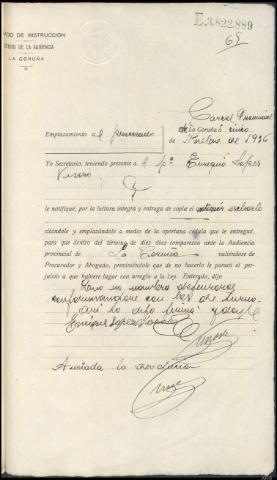 E.3822889
69
ADO DE INSTRUCCION
DISTRITO DE LA AUDIENCIA
LA CORUÑA
Carcel Provincial
de La Coruña cinco
de Novbre de 1936
Emplazamiento al procesado
Yo Secretario, teniendo presente a el pº Enrique Lopez
le notifiqué, por la lectura íntegra y entrega de copia el
citándole y emplazándole a medio de la oportuna cédula que le entregué,
para que dentro del término de diez días comparezca ante la Audiencia
provincial de La Coruña valiéndose de
Procurador y Abogado, previniéndole que de no hacerlo le parará el per-
juicio a que hubiere lugar con arreglo a la Ley. Enterado, dijo
no nombra defensores
conformandose con los de turno.
Asi lo dijo firma y doy fe
Enrique Lopez